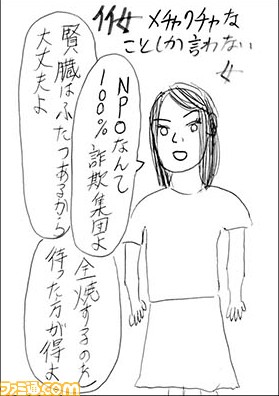 メチャクチャな
ことしか言わない
女
NPOなんて
100%詐欺集団よ
賢臓はふたつあるから
大丈夫よ
全焼するのを
待った方が得よ
ファミ通.com